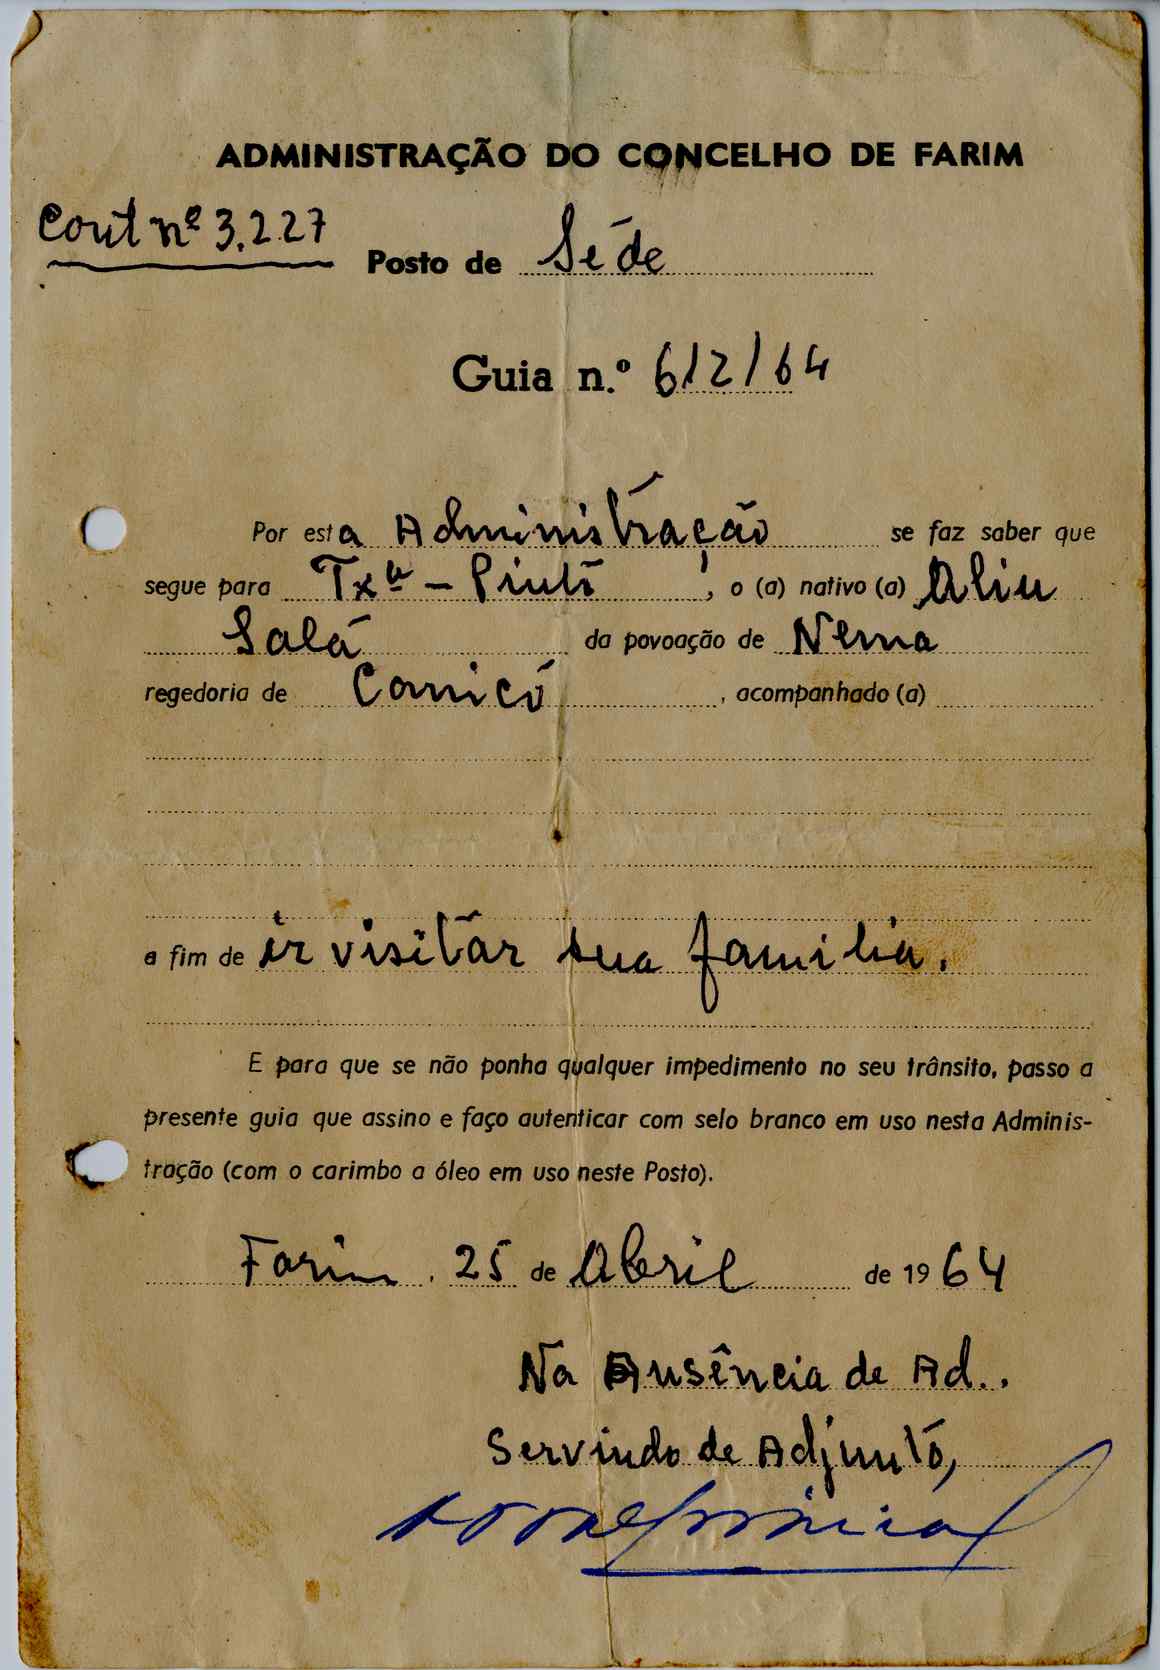 ADMINISTRAÇÃO DO CONCELHO DE FARIM
Cont nº 3.227
Posto de Séde
Guia n.º 612/64
Por esta Administração se faz saber que
segue para Txª - Pintö, o (a) nativo (a) Aliu
Salá da povoação de Nema
regedoria de Canicó, acompanhado (a)
a fim de ir visitar sua familia.
E para que se não ponha qualquer impedimento no seu trânsito, passo a
presente guia que assino e faço autenticar com selo branco em uso nesta Adminis-
tração (com o carimbo a óleo em uso neste Posto).
Farim, 25 de Abril de 1964
Na Ausência de Ad..
Servindo de Adjunto,